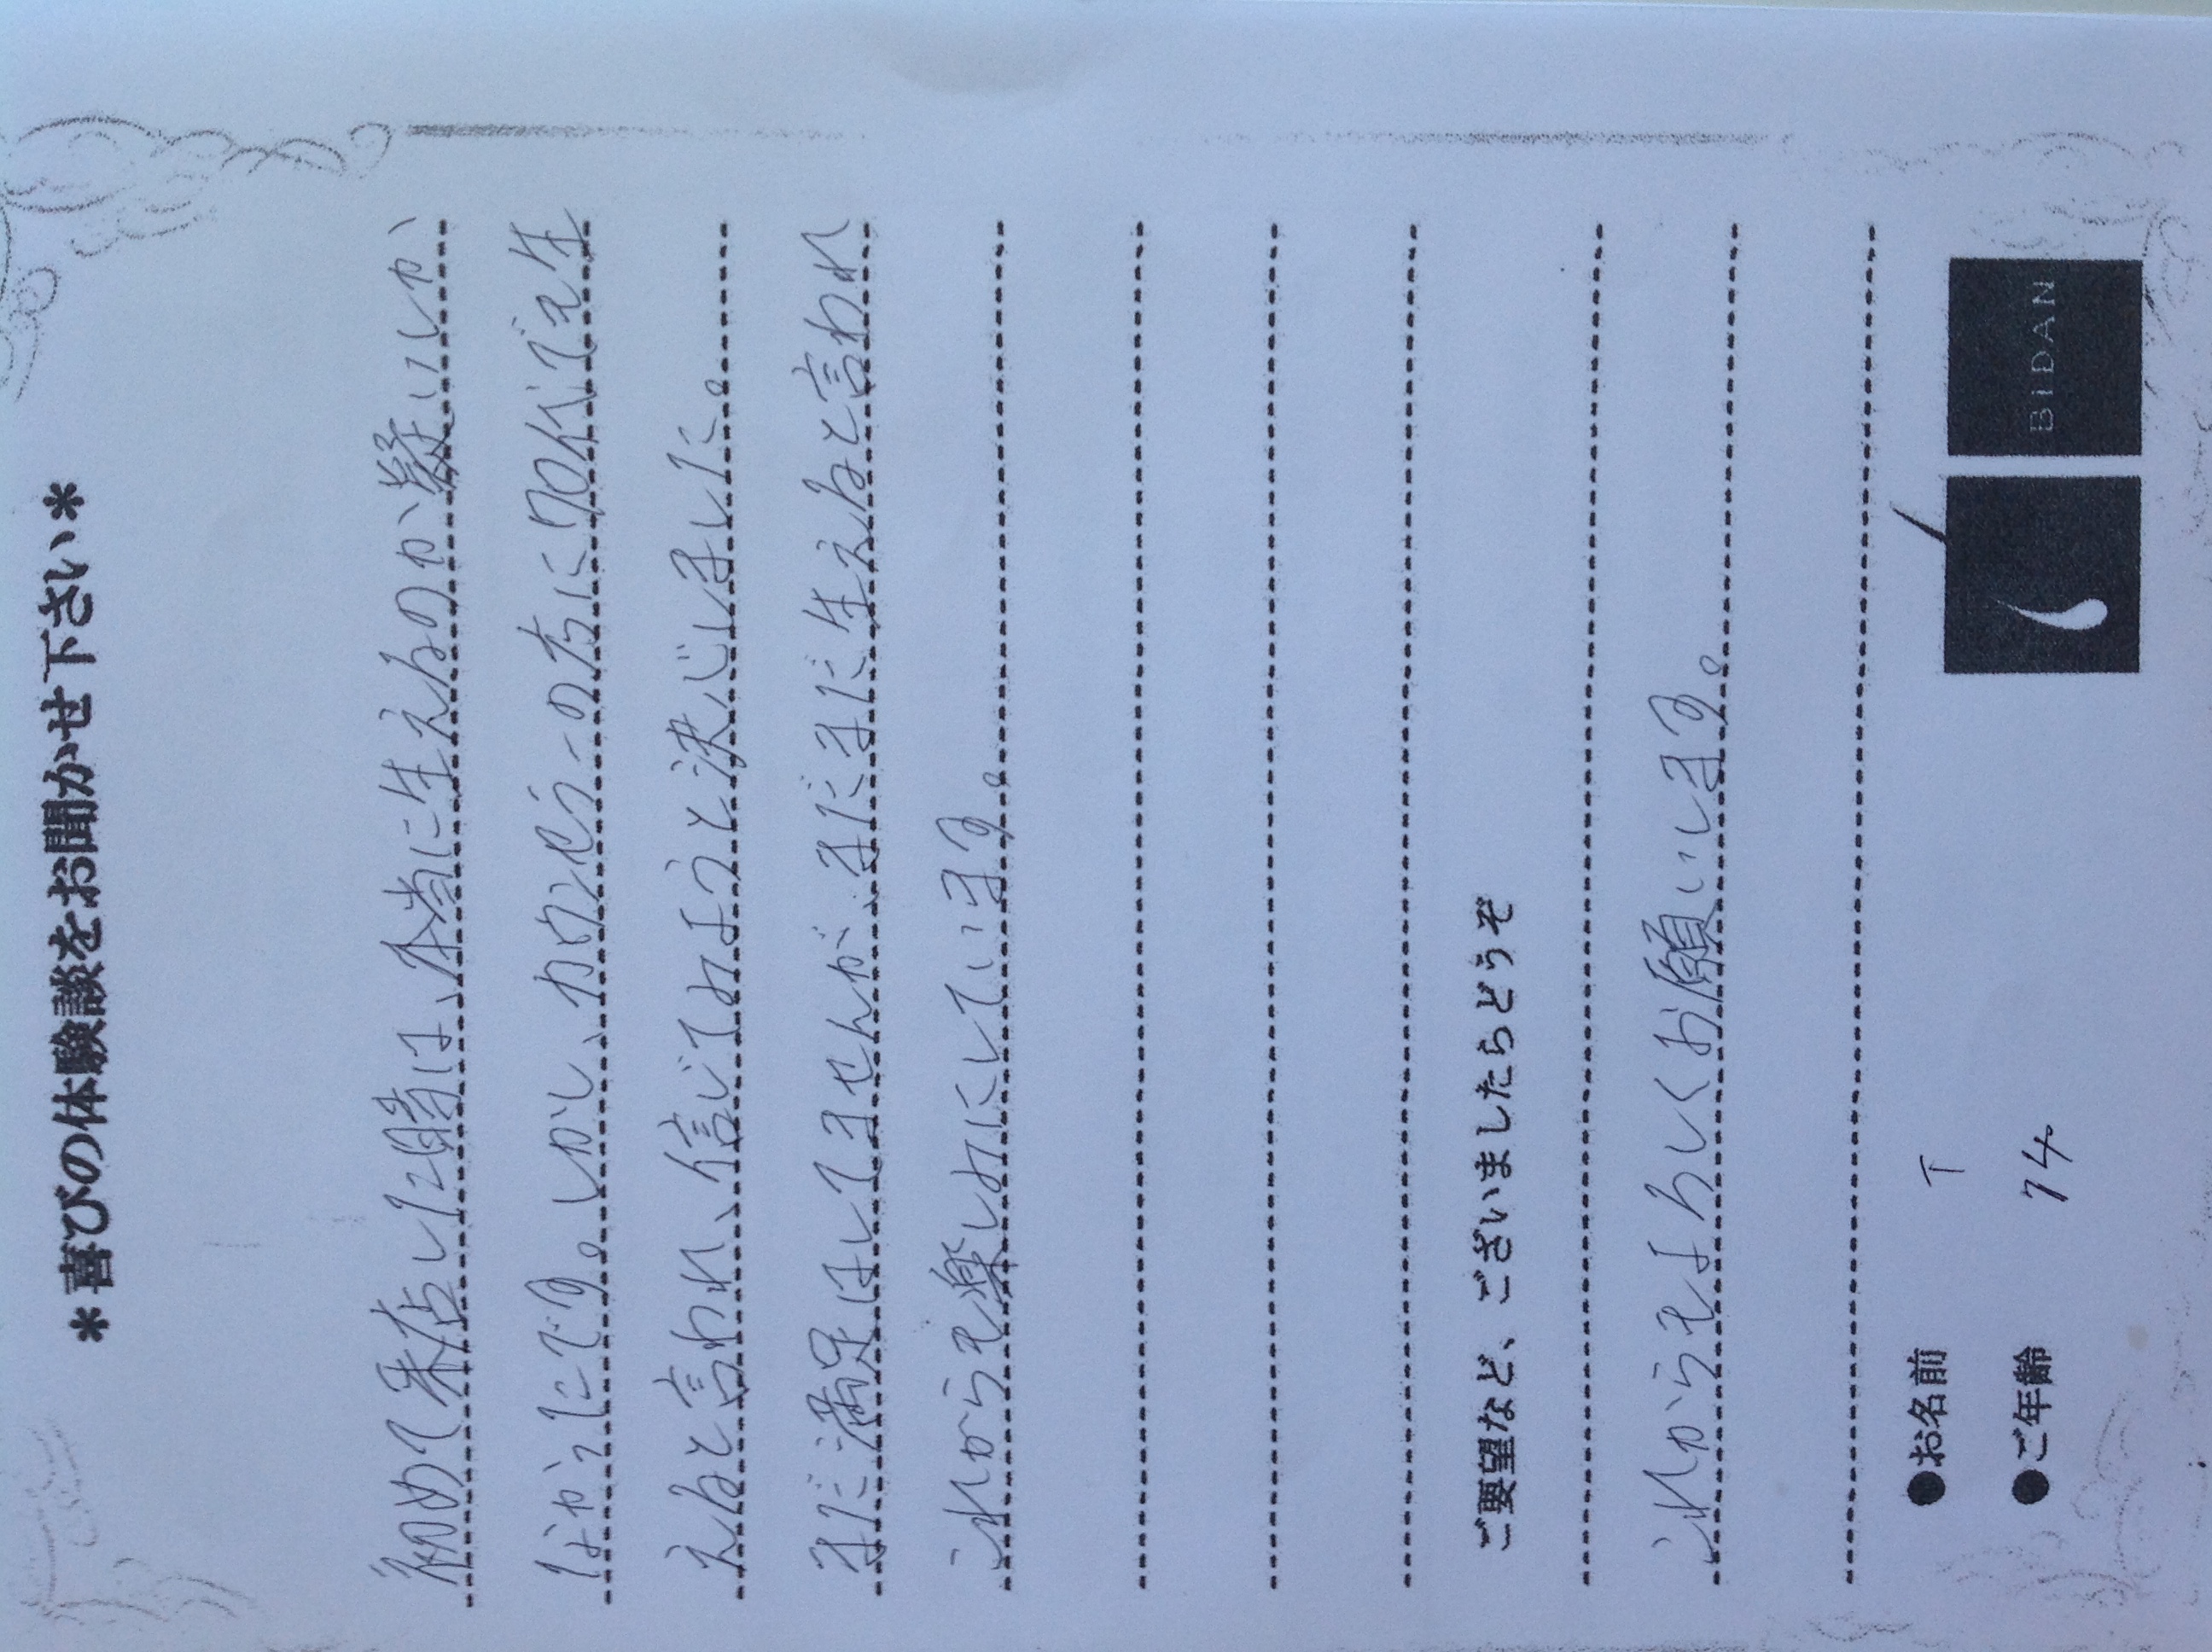 *喜びの体験談をお聞かせ下さい*
初めて来店した時は、本当に生えるのか、疑いしか
なかったです。しかし、カウンセラーの方に70代でも生
えると言われ、信じてみようと決心しました。
まだ満足はしてませんが、まだまだ生えると言われ
これからも楽しみにしています。
ご要望など、ございましたらどうぞ
これからもよろしくお願いします。
●お名前 T
●ご年齢 74
BIDAN